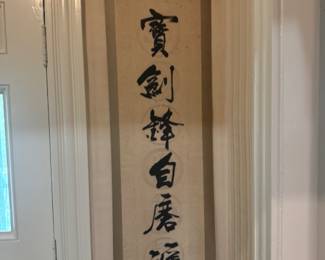 寶劍鋒自磨